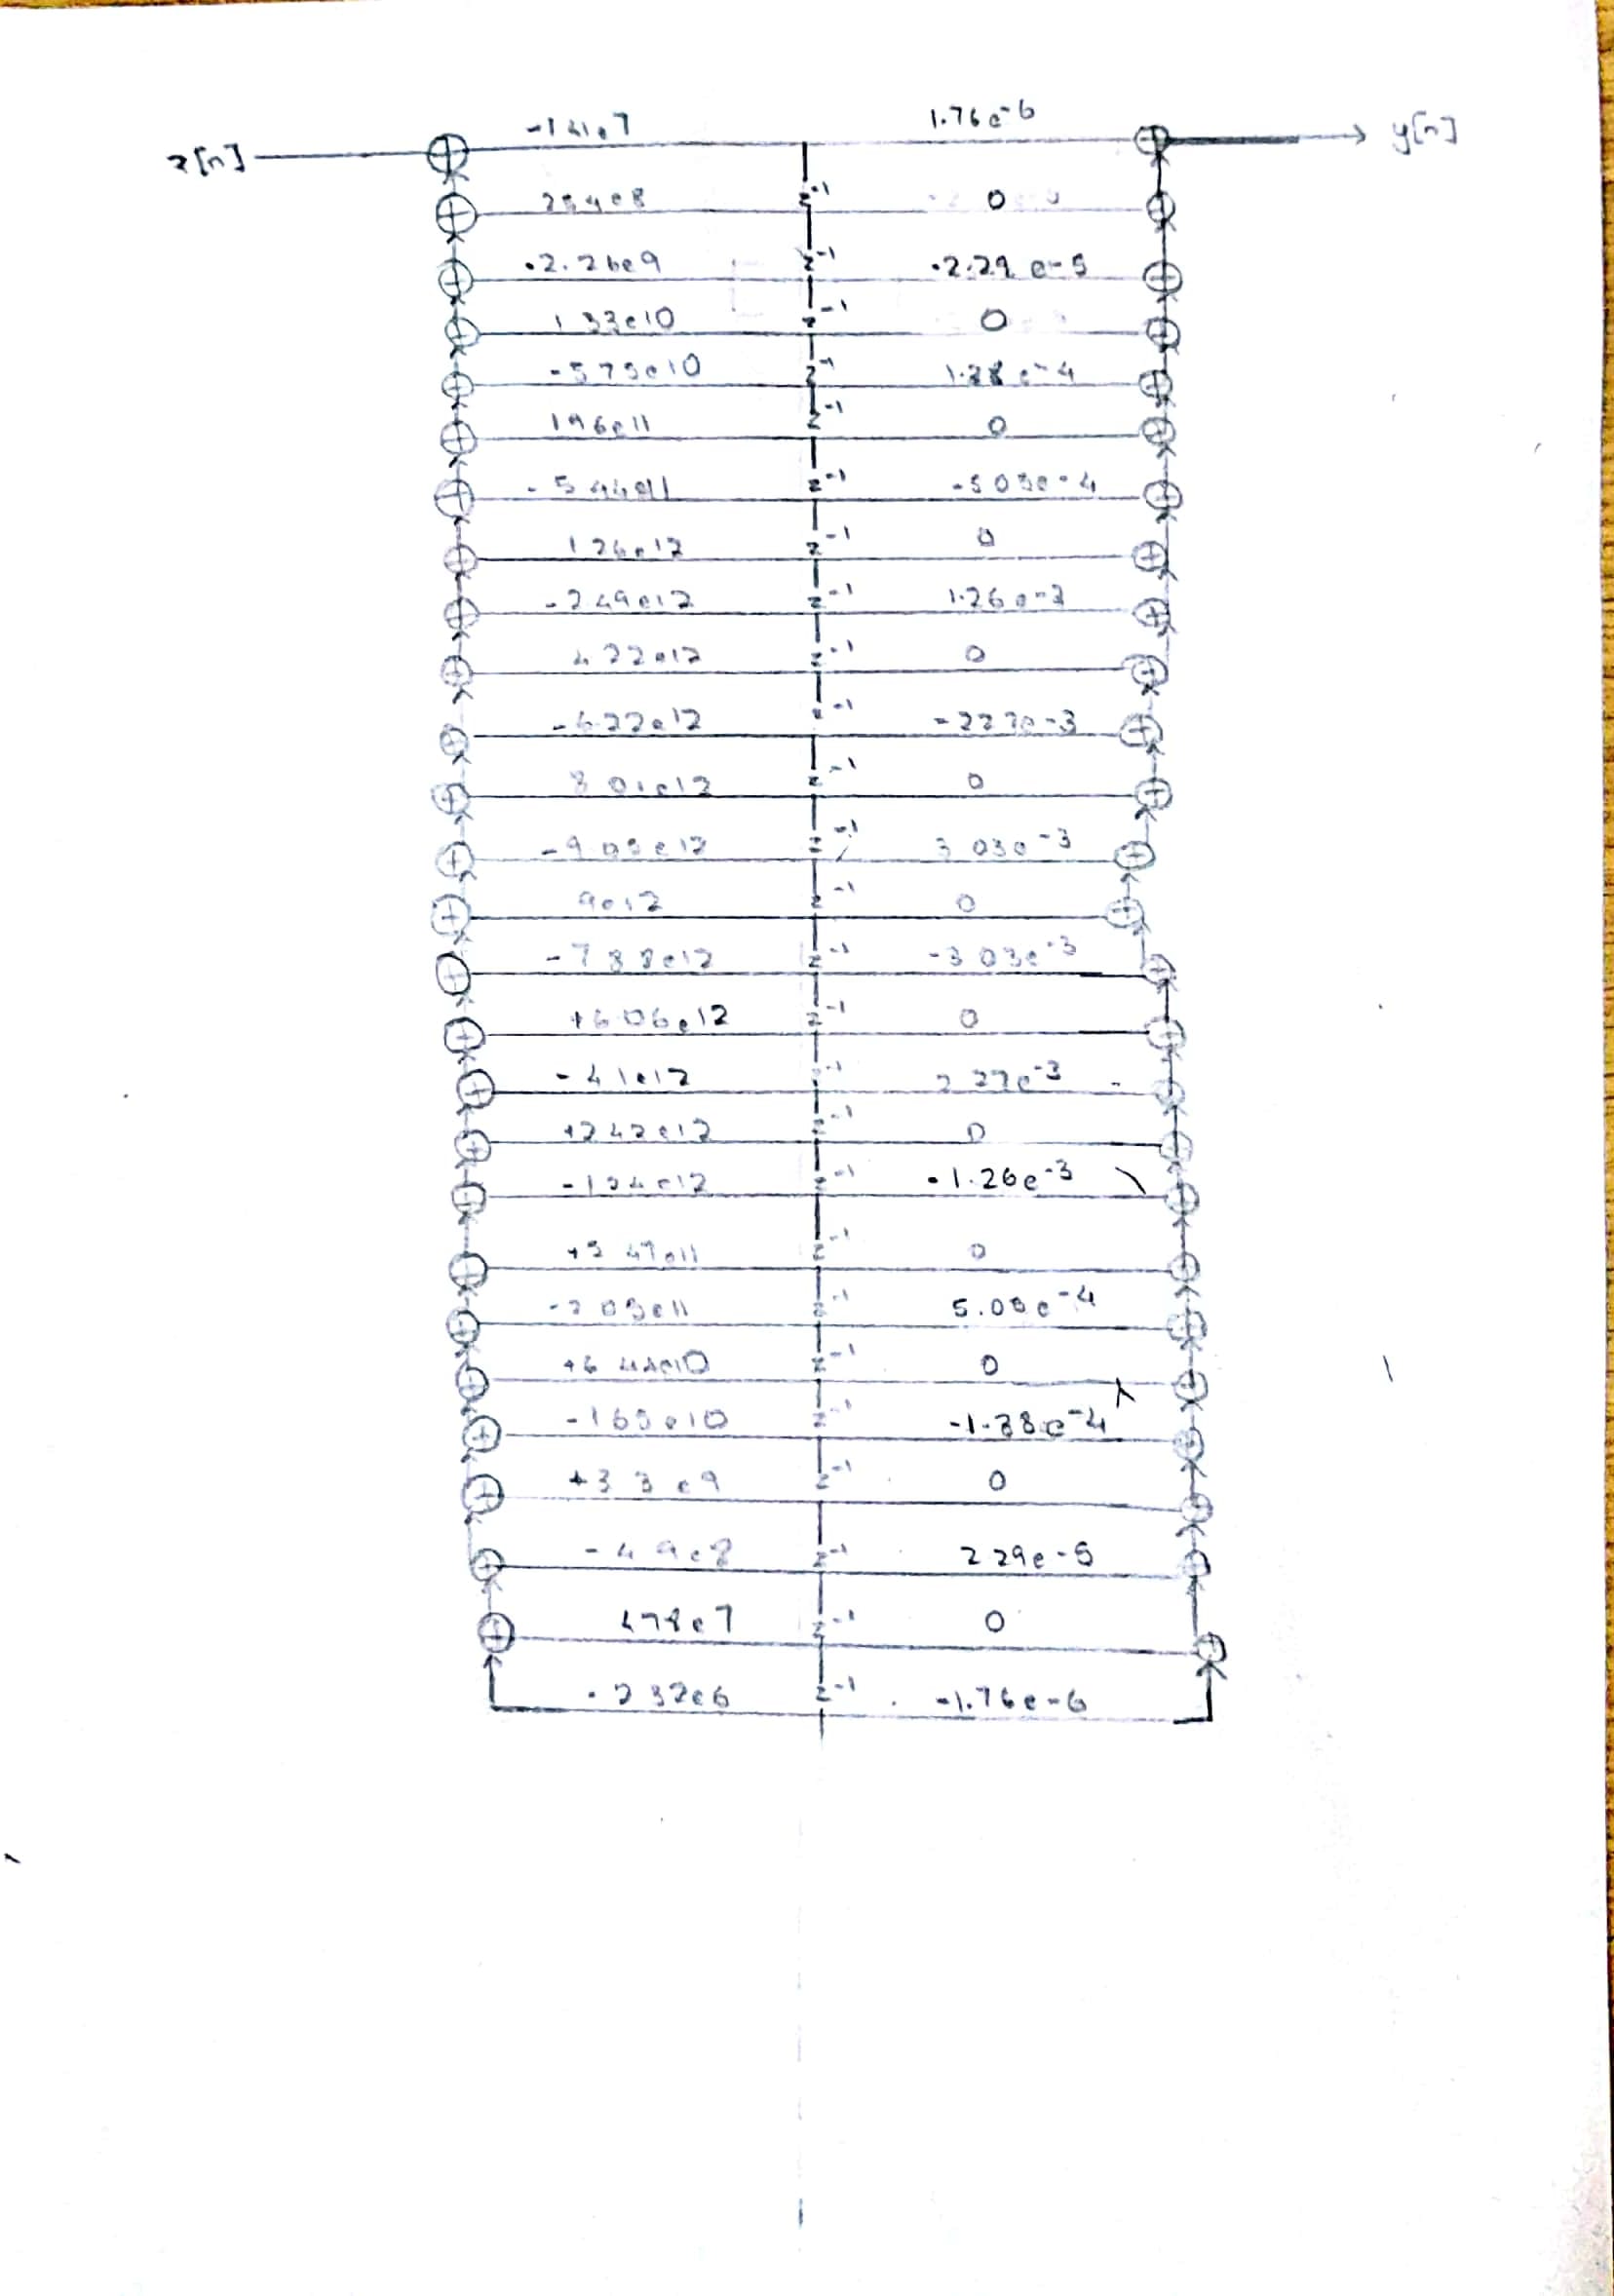 x[n] -1.41e7 1.76e-6 y[n]
2.54e8 z-1 0
-2.26e9 z-1 -2.29e-5
1.33e10 z-1 0
-5.75e10 z-1 1.38e-4
1.96e11 z-1 0
-5.44e11 z-1 -5.05e-4
1.26e12 z-1 0
-2.49e12 z-1 1.26e-3
4.22e12 z-1 0
-6.22e12 z-1 -2.27e-3
8.01e12 z-1 0
-9.05e12 z-1 3.03e-3
9e12 z-1 0
-7.88e12 z-1 -3.03e-3
+6.06e12 z-1 0
-4.1e12 z-1 2.27e-3
+2.42e12 z-1 0
-1.24e12 z-1 -1.26e-3
+5.47e11 z-1 0
-2.05e11 z-1 5.05e-4
+6.44e10 z-1 0
-1.65e10 z-1 -1.38e-4
+3.3e9 z-1 0
-4.9e8 z-1 2.29e-5
4.78e7 z-1 0
-2.32e6 z-1 -1.76e-6